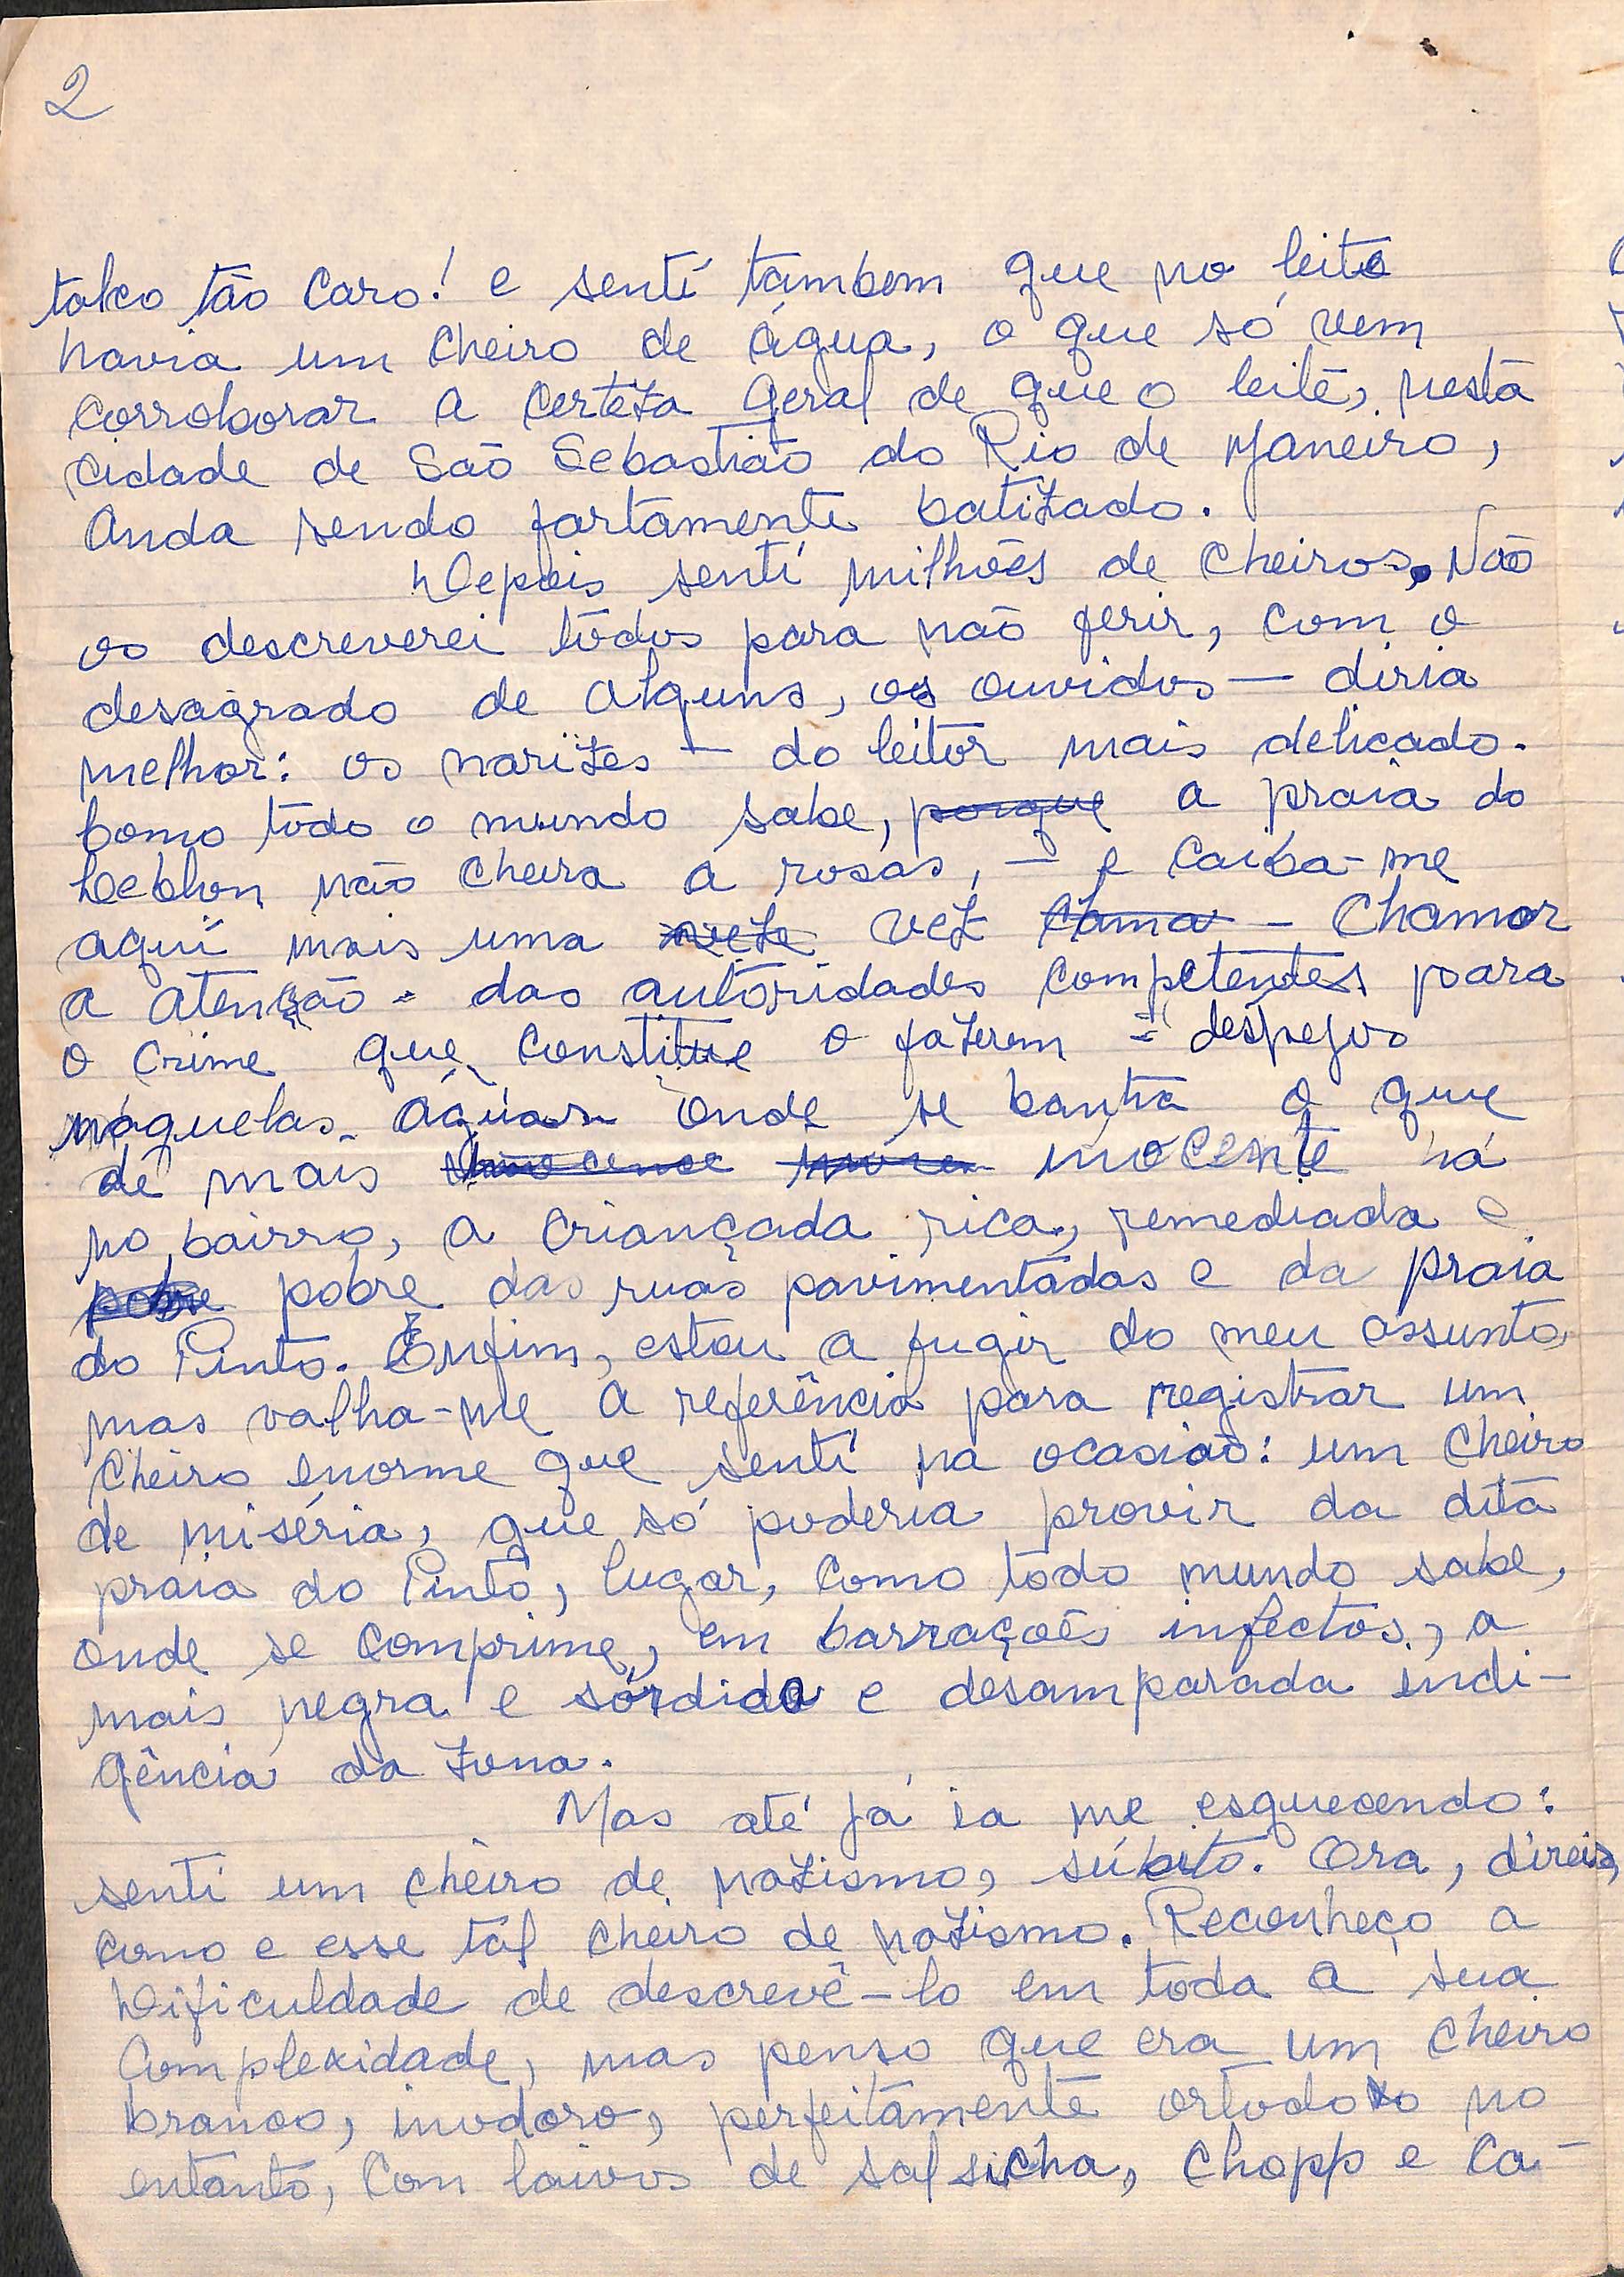 2
talco tão caro! e sentí tambem que no leite
havia um cheiro de água, o que só vem
corroborar a certeza geral de que o leite, nesta
cidade de São Sebastião do Rio de Janeiro,
anda sendo fartamente batizado.
Depois sentí milhões de cheiros. Não
os descreverei todos para não ferir, com o
desagrado de alguns, os ouvidos — diria
melhor: os narizes — do leitor mais delicado.
Como todo o mundo sabe, porque a praia do
Leblon não cheira a rosas, — e caiba-me
aquí mais uma vez chama - chamar
a atenção - das autoridades competentes para
o crime que constitue o fazerem - despejos
náquelas águas onde se banha o que
de mais inocente há
no bairro, a criançada rica, remediada e
pobre pobre das ruas pavimentadas e da praia
do Pinto. Enfim, estou a fugir do meu assunto,
mas valha-me a referência para registrar um
cheiro enorme que sentí na ocasião: um cheiro
de miséria, que só poderia provir da dita
praia do Pinto, lugar, como todo mundo sabe,
onde se comprime, em barracões infectos, a
mais negra e sórdida e desamparada indi-
gência da zona.
Mas até já ia me esquecendo:
sentí um cheiro de nazismo, súbito. Ora, direis,
como e esse tal cheiro de nazismo. Reconheço a
dificuldade de descrevê-lo em toda a sua
complexidade, mas penso que era um cheiro
branco, inodoro, perfeitamente ortodoxo no
entanto, com laivos de salsicha, chopp e ca-